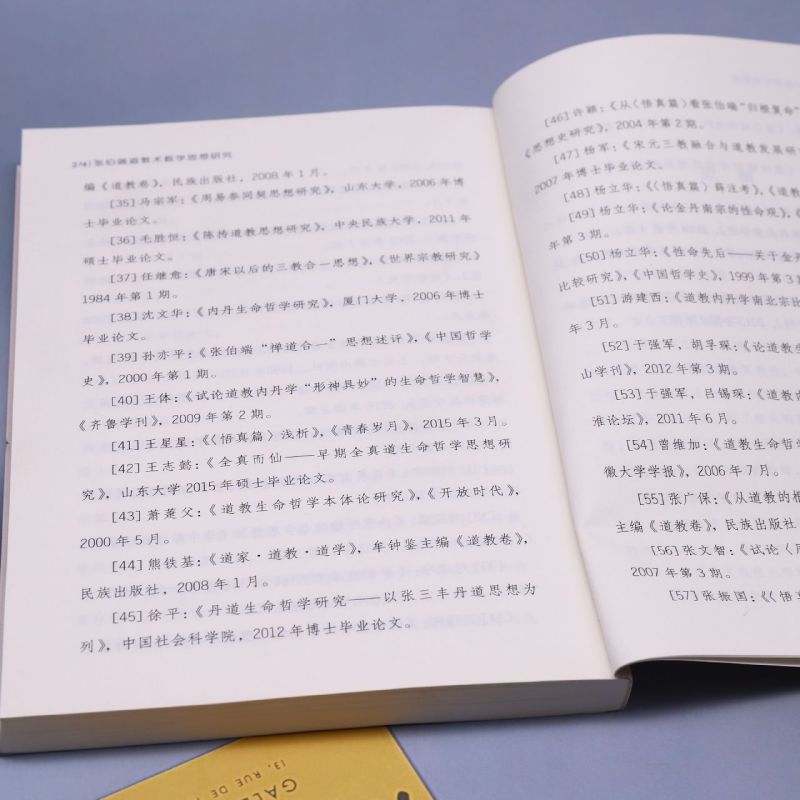 274 | 张伯端道教术数学思想研究
编《道教卷》，民族出版社，2008 年 1 月。
[35] 马宗军：《周易参同契思想研究》，山东大学，2006 年博
士毕业论文。
[36] 毛胜恒：《陈抟道教思想研究》，中央民族大学，2011 年
硕士毕业论文。
[37] 任继愈：《唐宋以后的三教合一思想》，《世界宗教研究》
1984 年第 1 期。
[38] 沈文华：《内丹生命哲学研究》，厦门大学，2006 年博士
毕业论文。
[39] 孙亦平：《张伯端“禅道合一”思想述评》，《中国哲学
史》，2000 年第 1 期。
[40] 王体：《试论道教内丹学“形神具妙”的生命哲学智慧》，
《齐鲁学刊》，2009 年第 2 期。
[41] 王星星：《〈悟真篇〉浅析》，《青春岁月》，2015 年 3 月。
[42] 王志懿：《全真而仙——早期全真道生命哲学思想研
究》，山东大学 2015 年硕士毕业论文。
[43] 萧萐父：《道教生命哲学本体论研究》，《开放时代》，
2000 年 5 月。
[44] 熊铁基：《道家·道教·道学》，牟钟鉴主编《道教卷》，
民族出版社，2008 年 1 月。
[45] 徐平：《丹道生命哲学研究——以张三丰丹道思想为
列》，中国社会科学院，2012 年博士毕业论文。
[46] 许颖：《从〈悟真篇〉看张伯端“归根复命”
《思想史研究》，2004 年第 2 期。
[47] 杨军：《宋元三教融合与道教发展研
2007 年博士毕业论文。
[48] 杨立华：《〈悟真篇〉薛注考》，《道
[49] 杨立华：《论金丹南宗的性命观》，《
年第 3 期。
[50] 杨立华：《性命先后——关于金丹
比较研究》，《中国哲学史》，1999 年第 3
[51] 游建西：《道教内丹学南北宗比
年 3 月。
[52] 于强军，胡孚琛：《论道教
山学刊》，2012 年第 3 期。
[53] 于强军，吕锡琛：《道教内
淮论坛》，2011 年 6 月。
[54] 曾维加：《道教生命哲学
徽大学学报》，2006 年 7 月。
[55] 张广保：《从道教的根
主编《道教卷》，民族出版社
[56] 张文智：《试论〈
2007 年第 3 期。
[57] 张振国：《〈悟
13, RUE DE
GALE